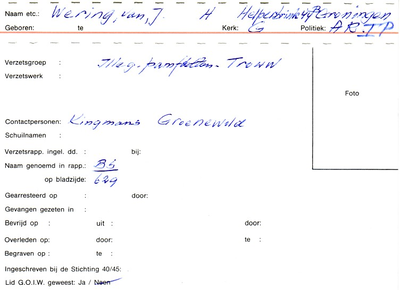 Naam etc.: Wering, van, J. H Helperbrink 49a Groningen
Geboren: te: Kerk: G Politiek: A.R.
Verzetsgroep : Illeg. pamfletten - Trouw
Verzetswerk :
Foto
Contactpersonen: Kingmans Groenewold
Schuilnamen :
Verzetsrapp. ingel. dd. : bij:
Naam genoemd in rapp.: BS
op bladzijde: 629
Gearresteerd op : door:
Gevangen gezeten in :
Bevrijd op : uit : door:
Overleden op: door: te :
Begraven op : te :
Ingeschreven bij de Stichting 40/45:
Lid G.O.I.W. geweest: Ja / Neen